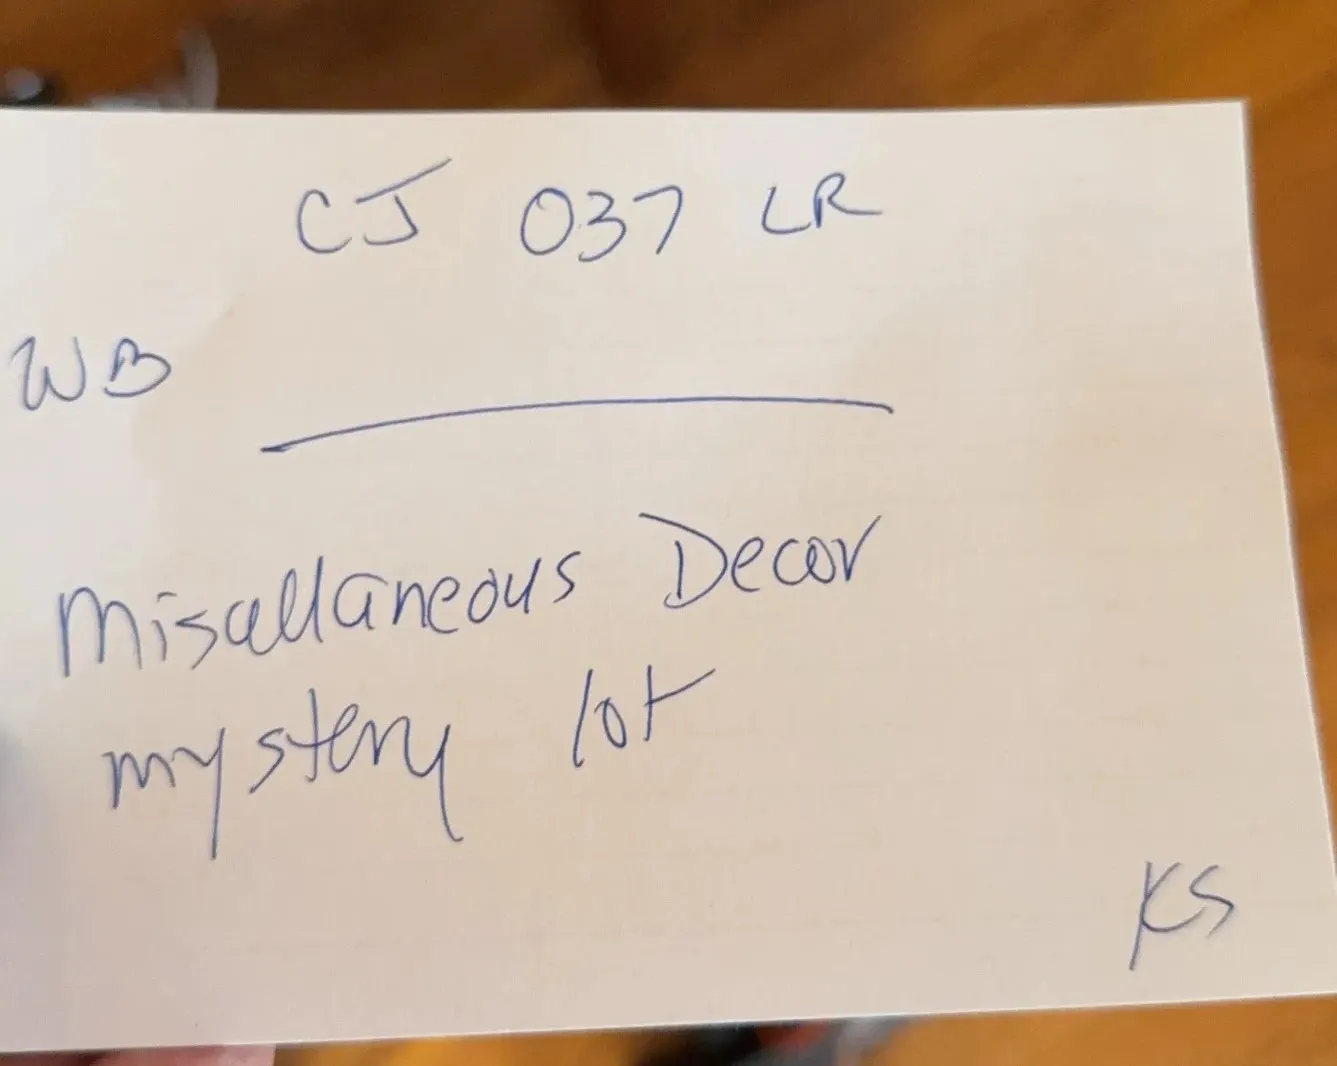 CJ 037 LR
WB
Miscallaneous Decor
mystery lot
KS